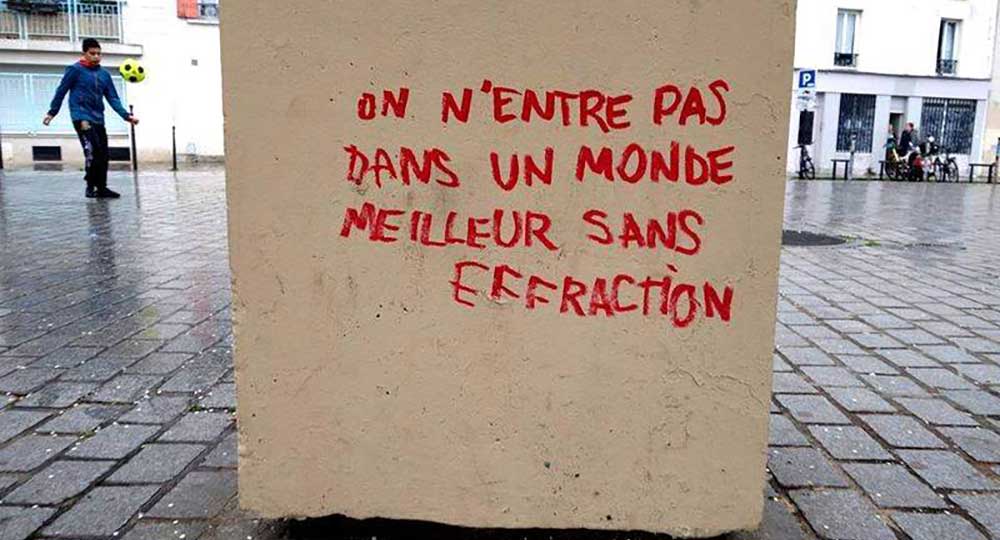 ON N'ENTRE PAS
DANS UN MONDE
MEILLEUR SANS
EFFRACTION
P